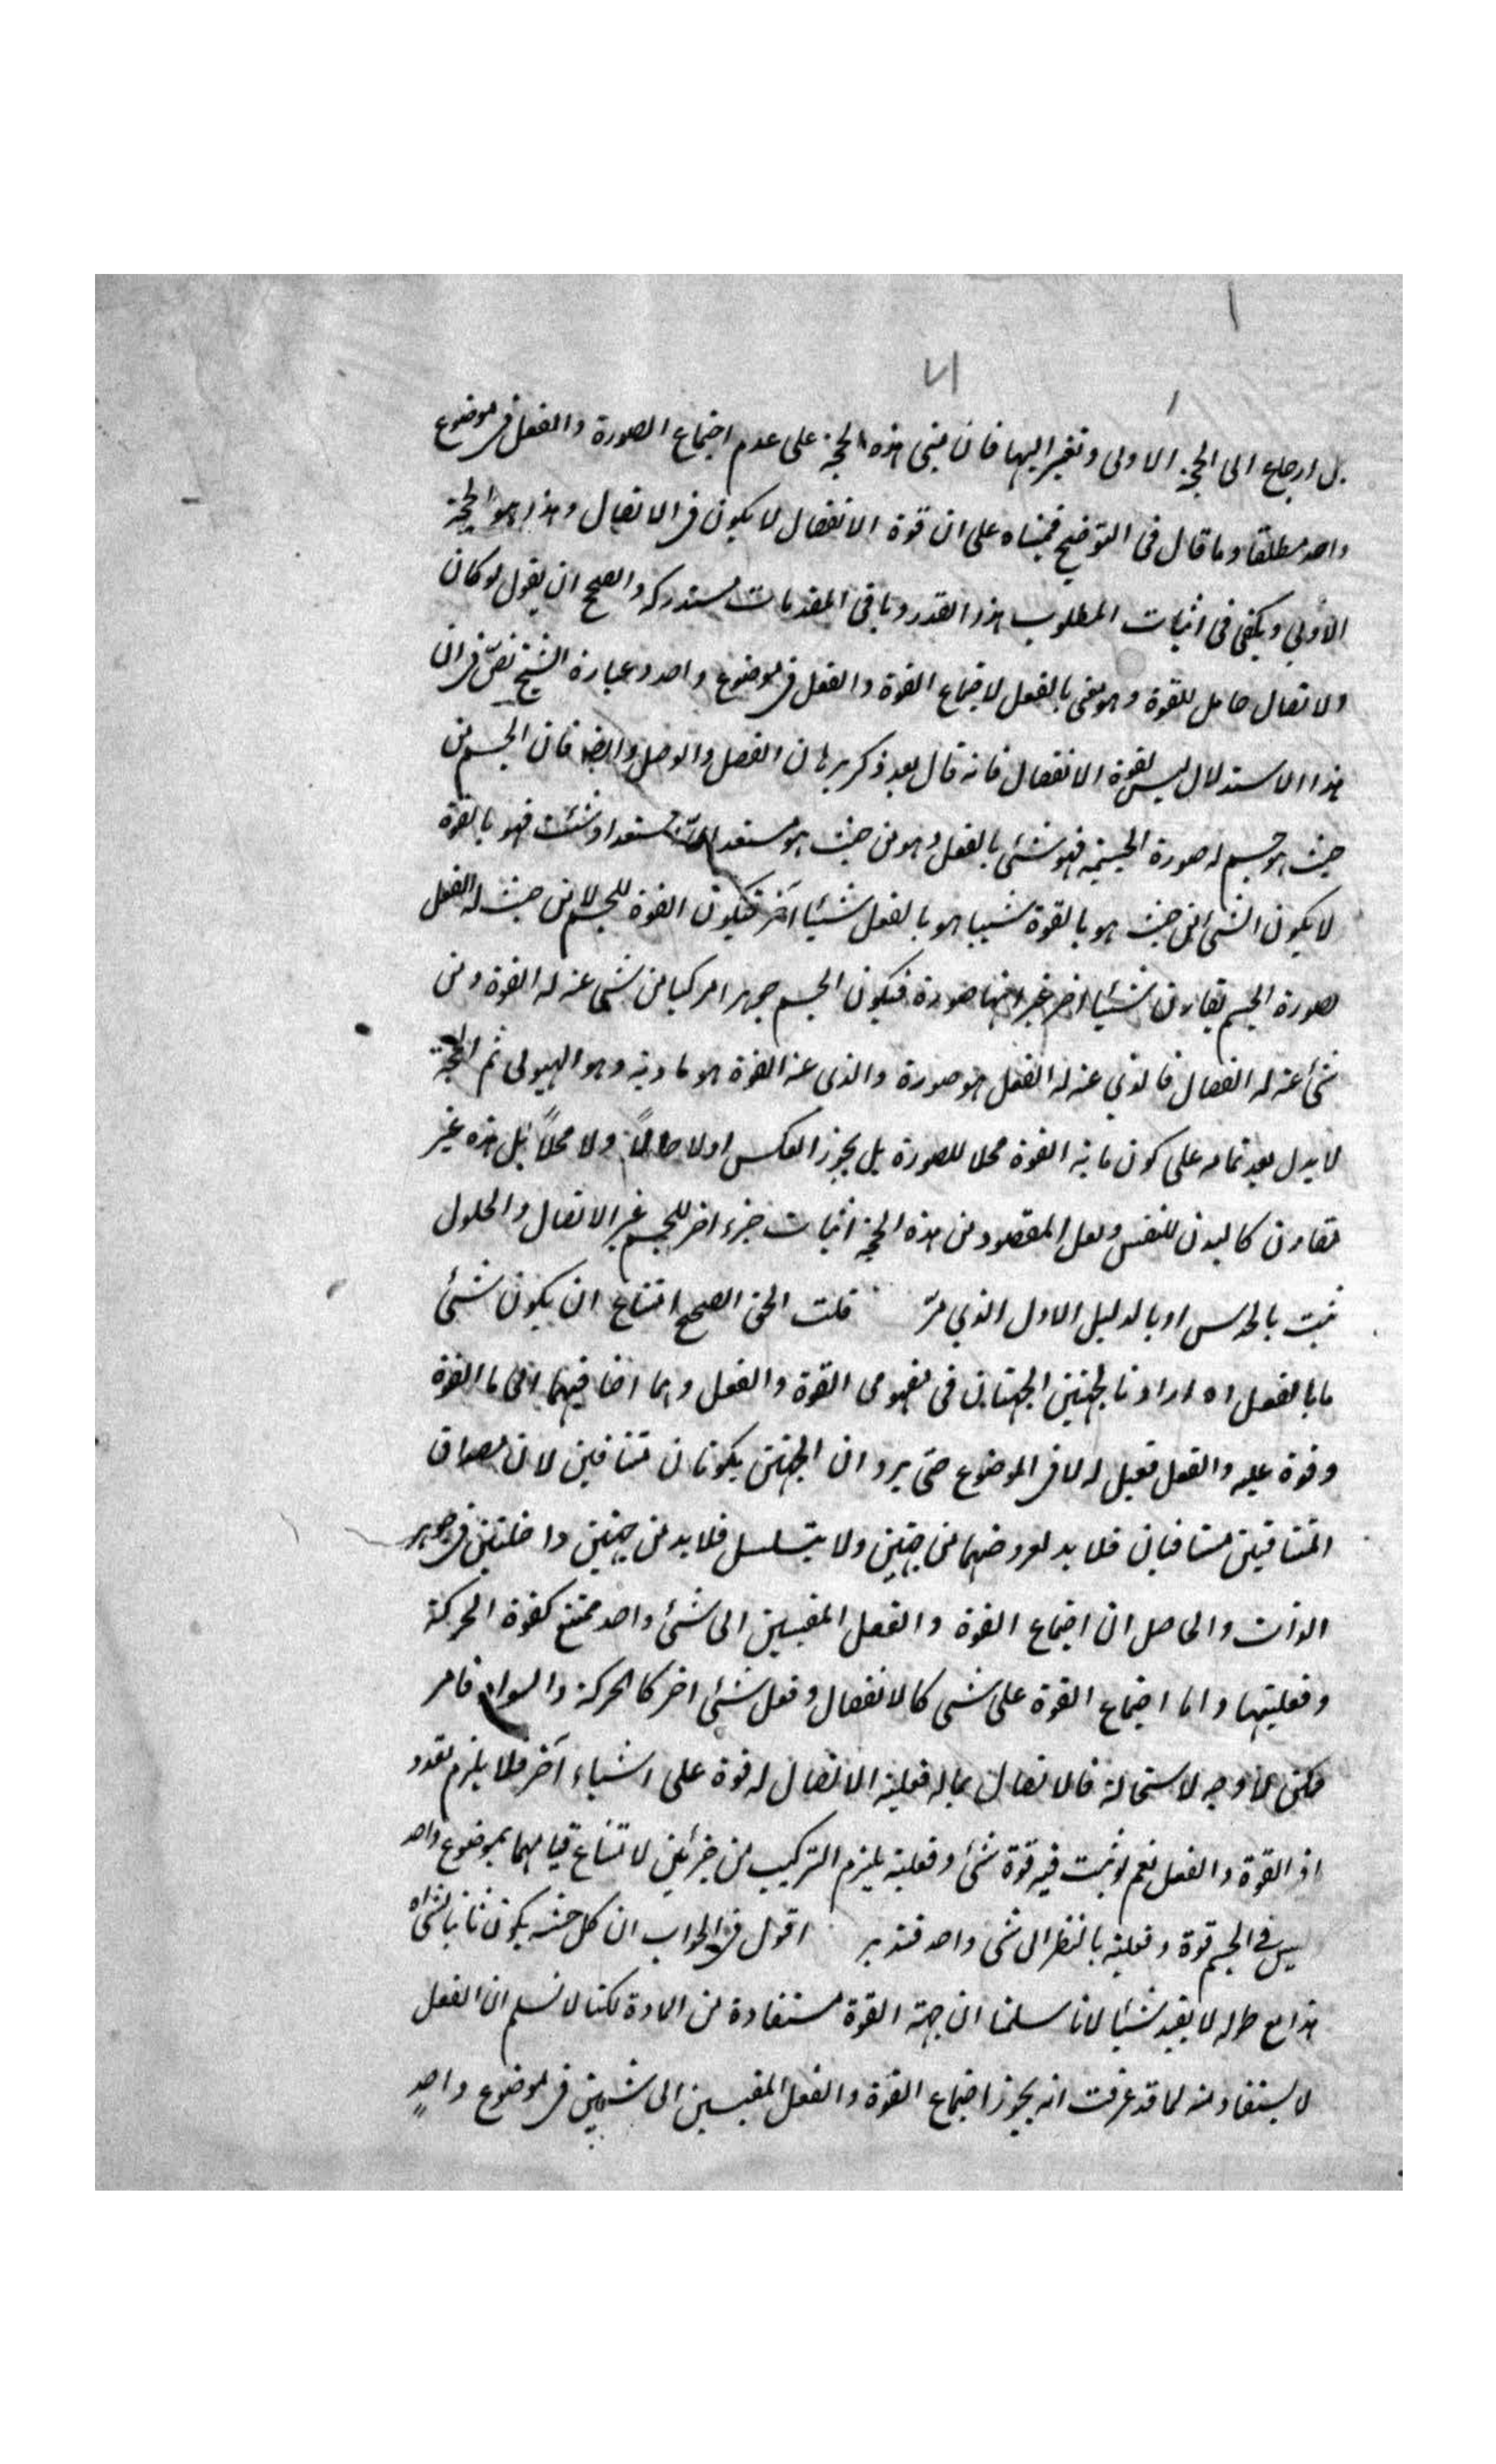 بل ارجاع الى الحجة الاولى وتغير اليها فان مبنى هذه الحجة على عدم اجتماع الصورة والفعل في موضوع
واحد مطلقا وما قال في التوضيح فمبناه على ان قوة الانفصال لا يكون في الاتصال وهذا هو الحجة
الاولى ويكفى في اثبات المطلوب هذا القدر وباقى المقدمات مستدركة والصحيح ان يقول لو كان
ولاتصال حامل للقوة وهو معنى بالفعل لاجتماع القوة والفعل في موضوع واحد وعبارة الشيخ نص في ان
هذا الاستدلال ليس بقوة الانفصال فانه قال بعد ذكر برهان الفصل والوصل وايضا فان الجسم من
حيث هو جسم له صورة الجسمية فهو شئ بالفعل وهو من حيث هو مستعد اى استعداد شئت فهو بالقوة
لا يكون الشئ من حيث هو بالقوة شيئا هو بالفعل شيئا آخر فتكون القوة للجسم لا من حيث له الفعل
صورة الجسم تقارن شيئا اخر غير انها صورة فيكون الجسم جوهرا مركبا من شئ عنه له القوة ومن
شئ عنه له الفعل فالذي عنه له الفعل هو صورة والذى عنه القوة هو مادته وهو الهيولى ثم الحجة
لا يدل بعد تمامه على كون ما به القوة محلا للصورة بل يجوز العكس اولا حالاً ولا محلاً بل هذه غير
تقارن كالبدن للنفس ولعل المقصود من هذه الحجة اثبات جزء اخر للجسم غير الاتصال والحلول
ثبت بالحدس او بالدليل الاول الذي مرّ قلت الحق الصحيح امتناع ان يكون شئ
ما بالفعل اه اراد بالجهتين الجهتان في مفهومى القوة والفعل وهما اضافيهما اعنى ما القوة
وقوة عليه والفعل فعل له لا في الموضوع حتى يرد ان الجهتين يكونان متنافيين لان مصداق
المتنافيين متنافيان فلا بد لعروضهما من جهتين ولا يتسلسل فلا بد من جهتين داخلتين في جوهر
الذات والحاصل ان اجتماع القوة والفعل المقيسين الى شئ واحد ممتنع كقوة الحركة
وفعليتها واما اجتماع القوة على شئ كالانفصال وفعل شئ اخر كالحركة والسواد فامر
ممكن لا وجه لاستحالة فالاتصال بما له فعلية الاتصال له قوة على اشياء آخر فلا يلزم تعدد
اذ القوة والفعل نعم لو ثبت فيه قوة شئ وفعلية يلزم التركيب من جزئين لامتناع قيامهما بموضوع واحد
ليس في الجسم قوة وفعلية بالنظر الى شئ واحد فتدبر اقول في الجواب ان كل حيثية يكون
هذا مع طوله لا يفيد شيئا لانا سلمنا ان جهة القوة مستفادة من المادة لكنا لا نسلم ان الفعل
لا يستفاد منه لما قد عرفت انه يجوز اجتماع القوة والفعل المقيسين الى شيئين في موضوع واحد